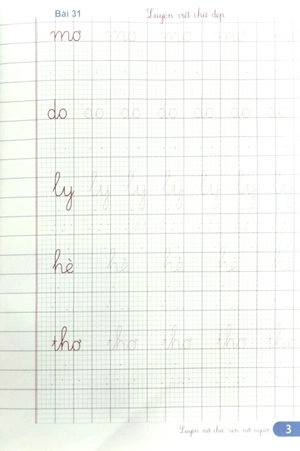 Bài 31 Luyện viết chữ đẹp
mơ mơ mơ mơ
do do do do do do do
ly ly ly ly ly ly ly
hè hè hè hè hè
thơ thơ thơ thơ thơ
Luyện nét chữ, rèn nết người 3